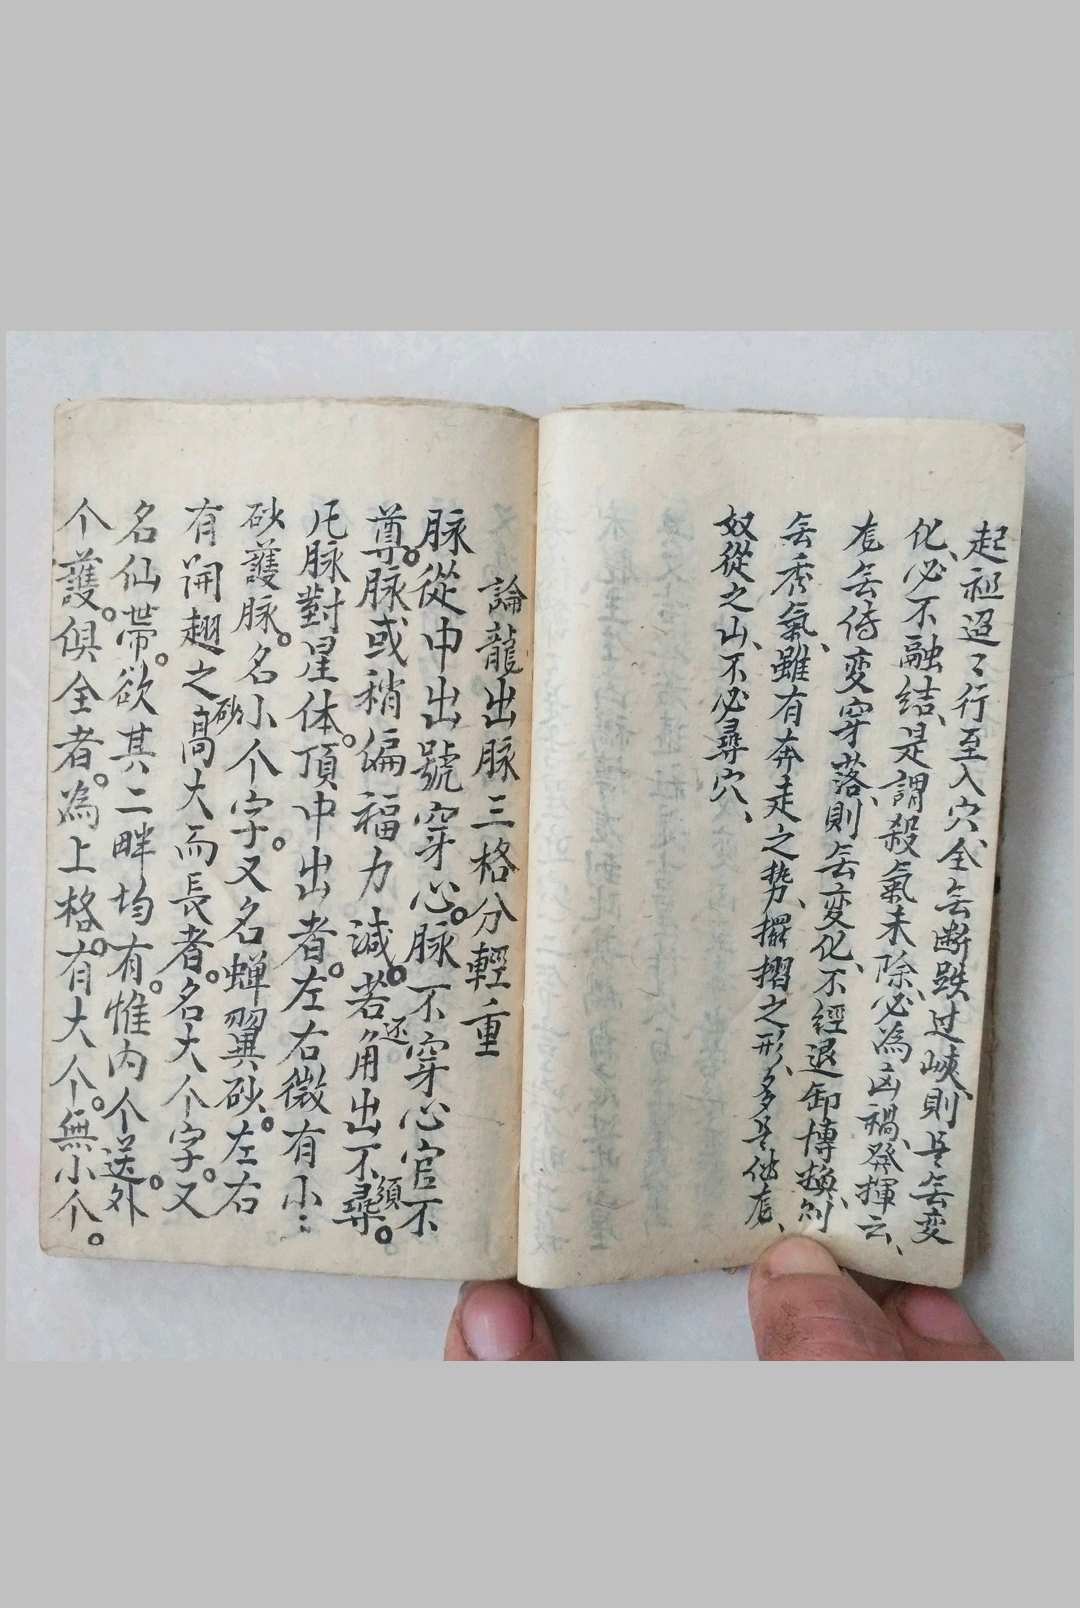 起祖迢〻行至入穴、全无断跌过峽、則是无変
化、必不融結、是謂殺氣未除、必為凶禍、發揮云、
龙无侍変穿落、則无変化、不經退卸博換、則
无秀氣、雖有奔走之势、擺摺之形、多是他龙、
奴從之山、不必尋穴、
論龍出脉三格分輕重
脉從中出號穿心。脉不穿心官不
尊。脉或稍偏福力減。若还角出不須尋。
凡脉對星体。頂中出者。左右微有小〻
砂護脉。名小个字。又名蟬翼砂。左右
有開翅之砂高大而長者。名大个字。又
名仙帶。欲其二畔均有。惟内个送。外
个護。俱全者。為上格。有大个。無小个。